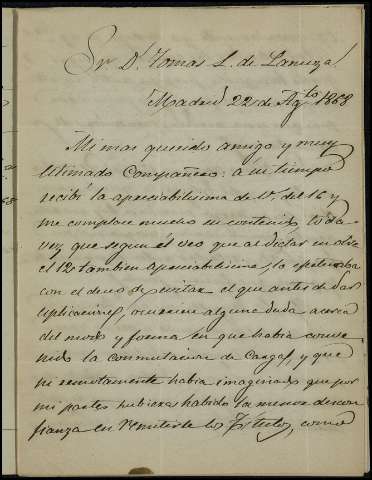 Sr. Dn. Tomas L. de Lanuza
Madrid 22 de Agto 1868
Mi mas querido amigo y muy
estimado Compañero: á su tiempo
recibí la apreciabilisima de V. del 16 y
me complace mucho su contenido, toda
vez que segun él veo que al dictar
el 12 tambien apreciabilisima, lo
con el deseo de evitar el que antes de dar
esplicaciones, ocurriera alguna duda acerca
del modo y forma en que habia conve
nido la conmutacion de Cargas, y que
ni remotamente habia imaginado que por
mi parte hubiera habido la menor descon
fianza en remitirle los Titulos, como